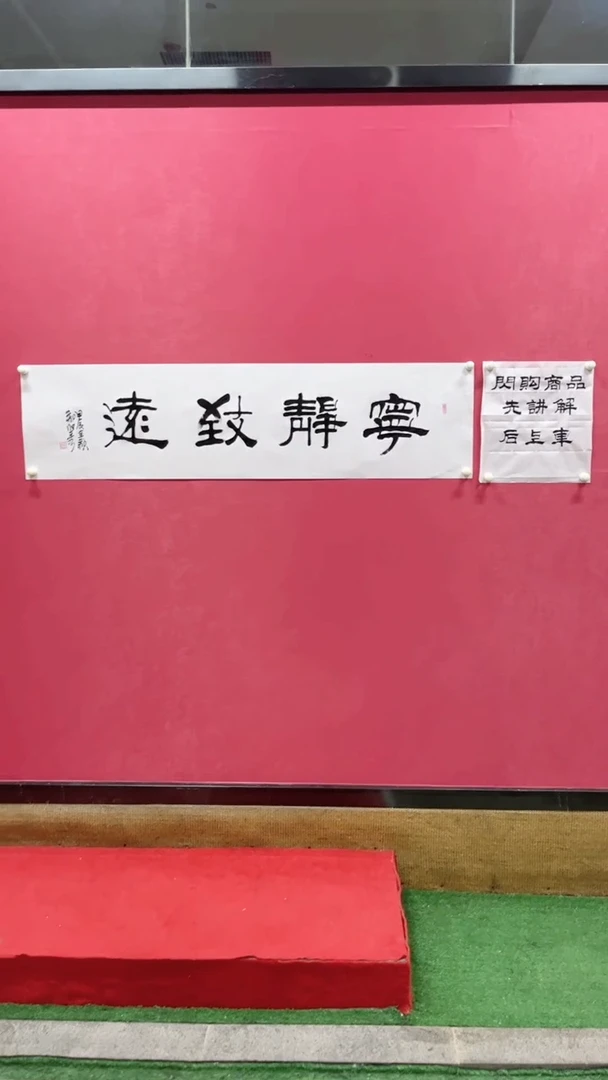 寧靜致遠
閃购商品
先講解
后上車